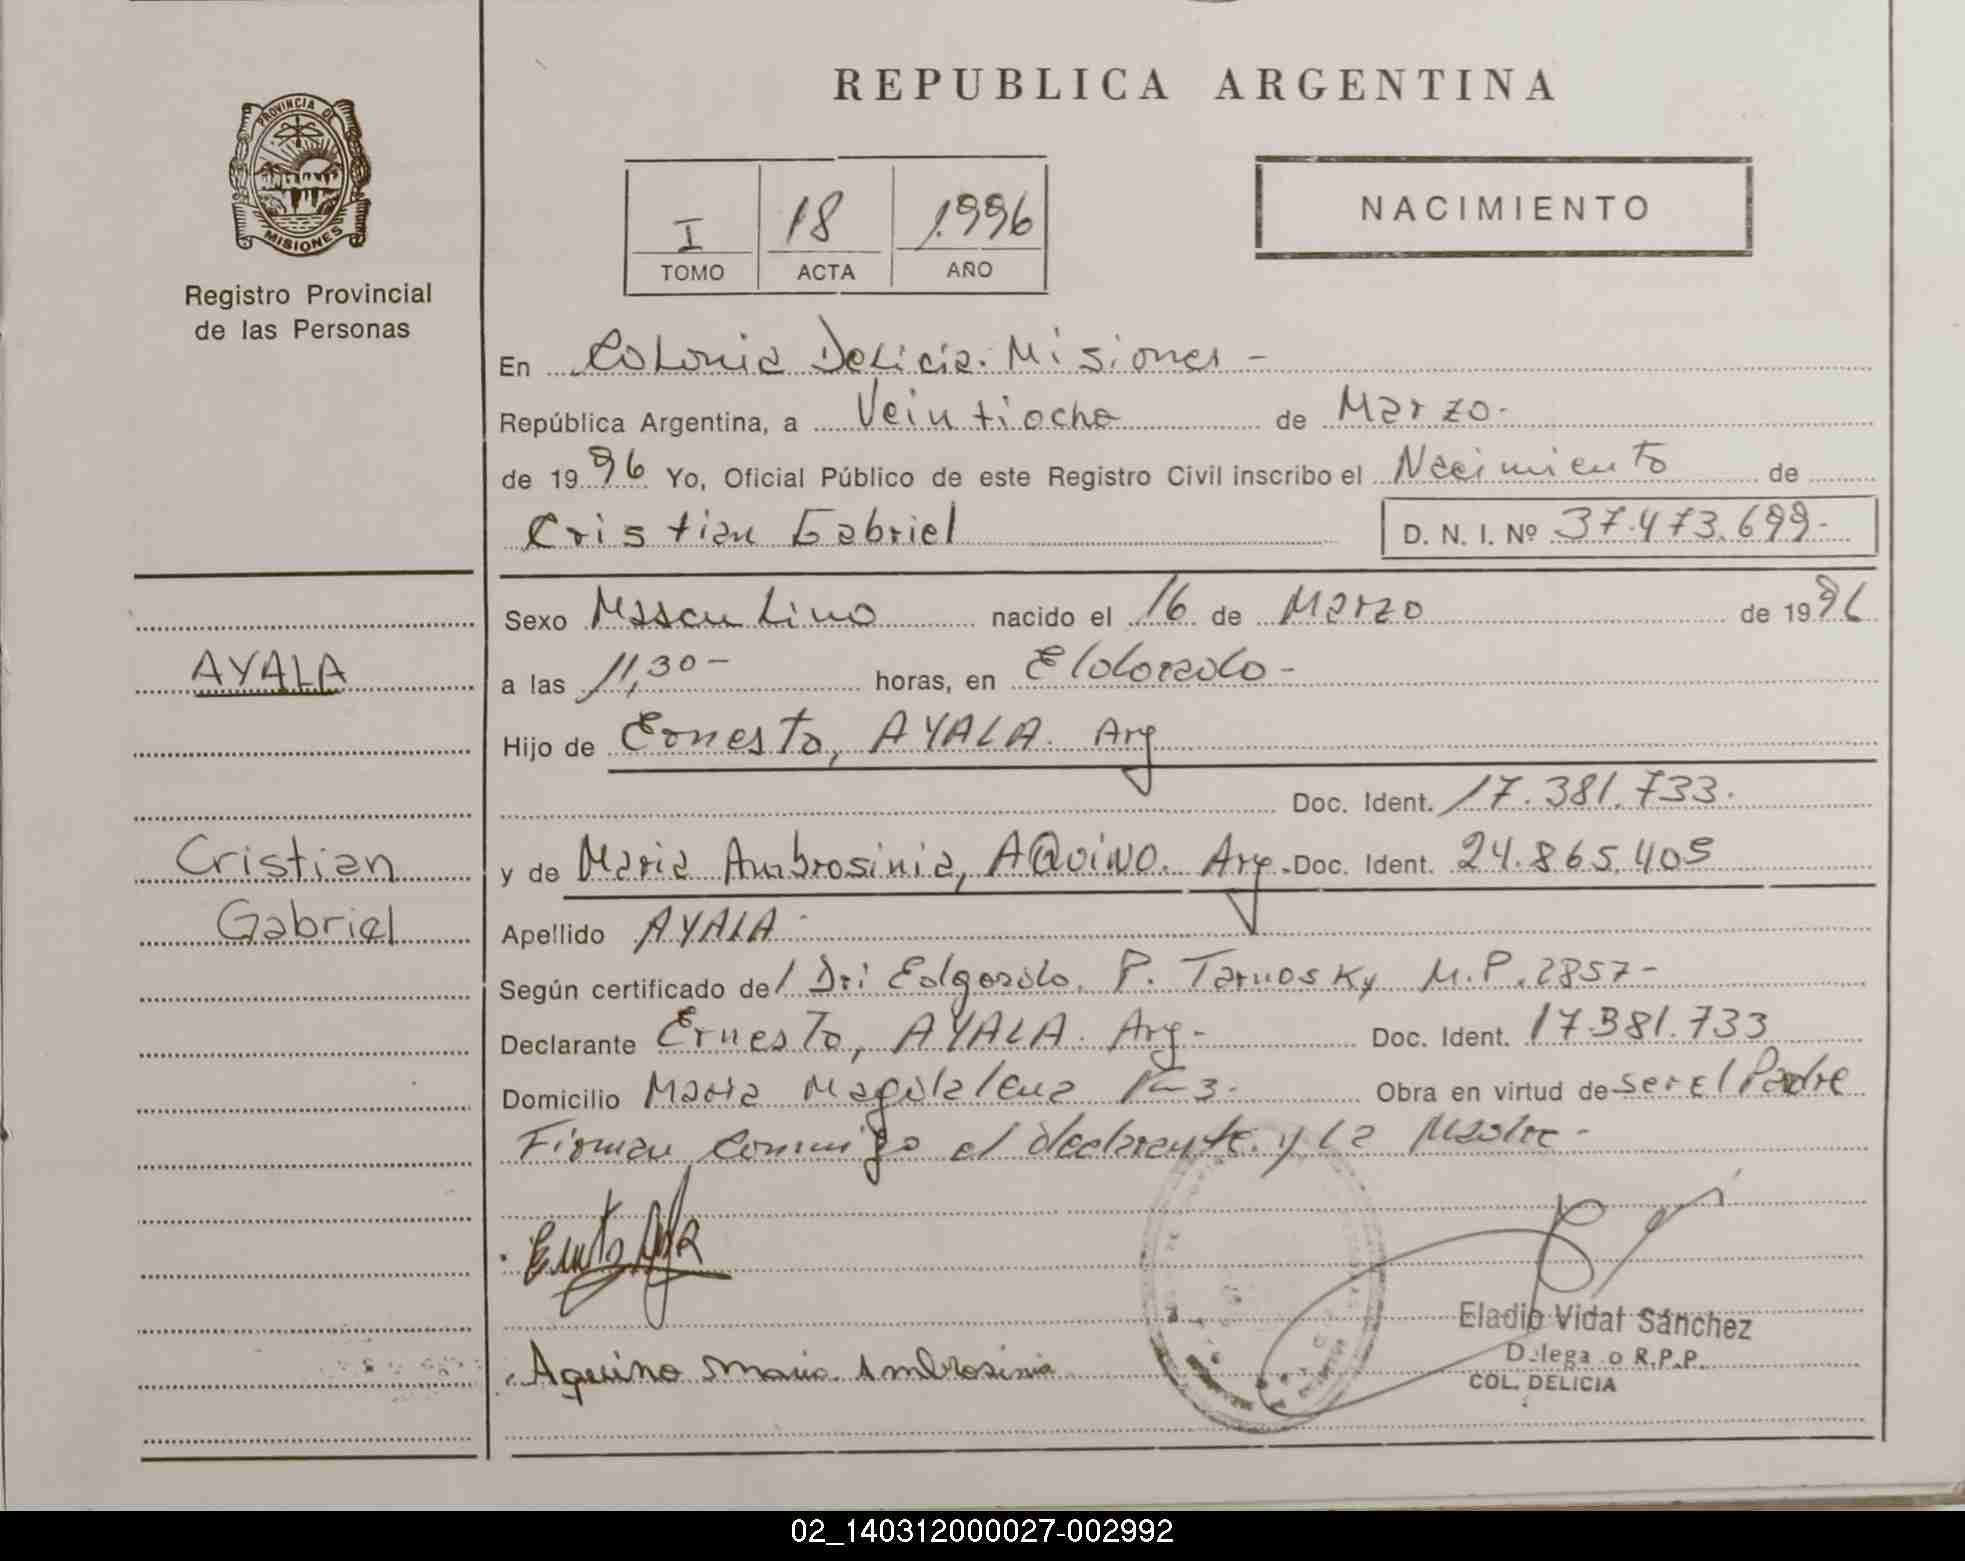 PROVINCIA DE
MISIONES
Registro Provincial
de las Personas
REPUBLICA ARGENTINA
I 18 1996
TOMO ACTA AÑO
NACIMIENTO
En Colonia Delicia. Misiones -
República Argentina, a Veintiocho de Marzo.
de 1996 Yo, Oficial Público de este Registro Civil inscribo el Nacimiento de
Cristian Gabriel D. N. I. Nº 37.473.699-
Sexo Masculino nacido el 16 de Marzo de 1996
a las 11,30 - horas, en Eldorado -
AYALA
Hijo de Ernesto, AYALA. Arg
Doc. Ident. 17.381.733.
Cristian
Gabriel
y de Maria Ambrosinia, AQuiNO. Arg. Doc. Ident. 24.865.409
Apellido AYALA.
Según certificado de Dr: Edgardo P. Tarnosky M.P. 2857 -
Declarante Ernesto, AYALA. Arg - Doc. Ident. 17.381.733
Domicilio Maria Magdalena K- 3. Obra en virtud de ser el Padre
Firman conmigo el declarante y la Madre -
Aquino Maria Ambrosinia
Eladio Vidal Sánchez
Delega o R.P.P.
COL. DELICIA
02_140312000027-002992